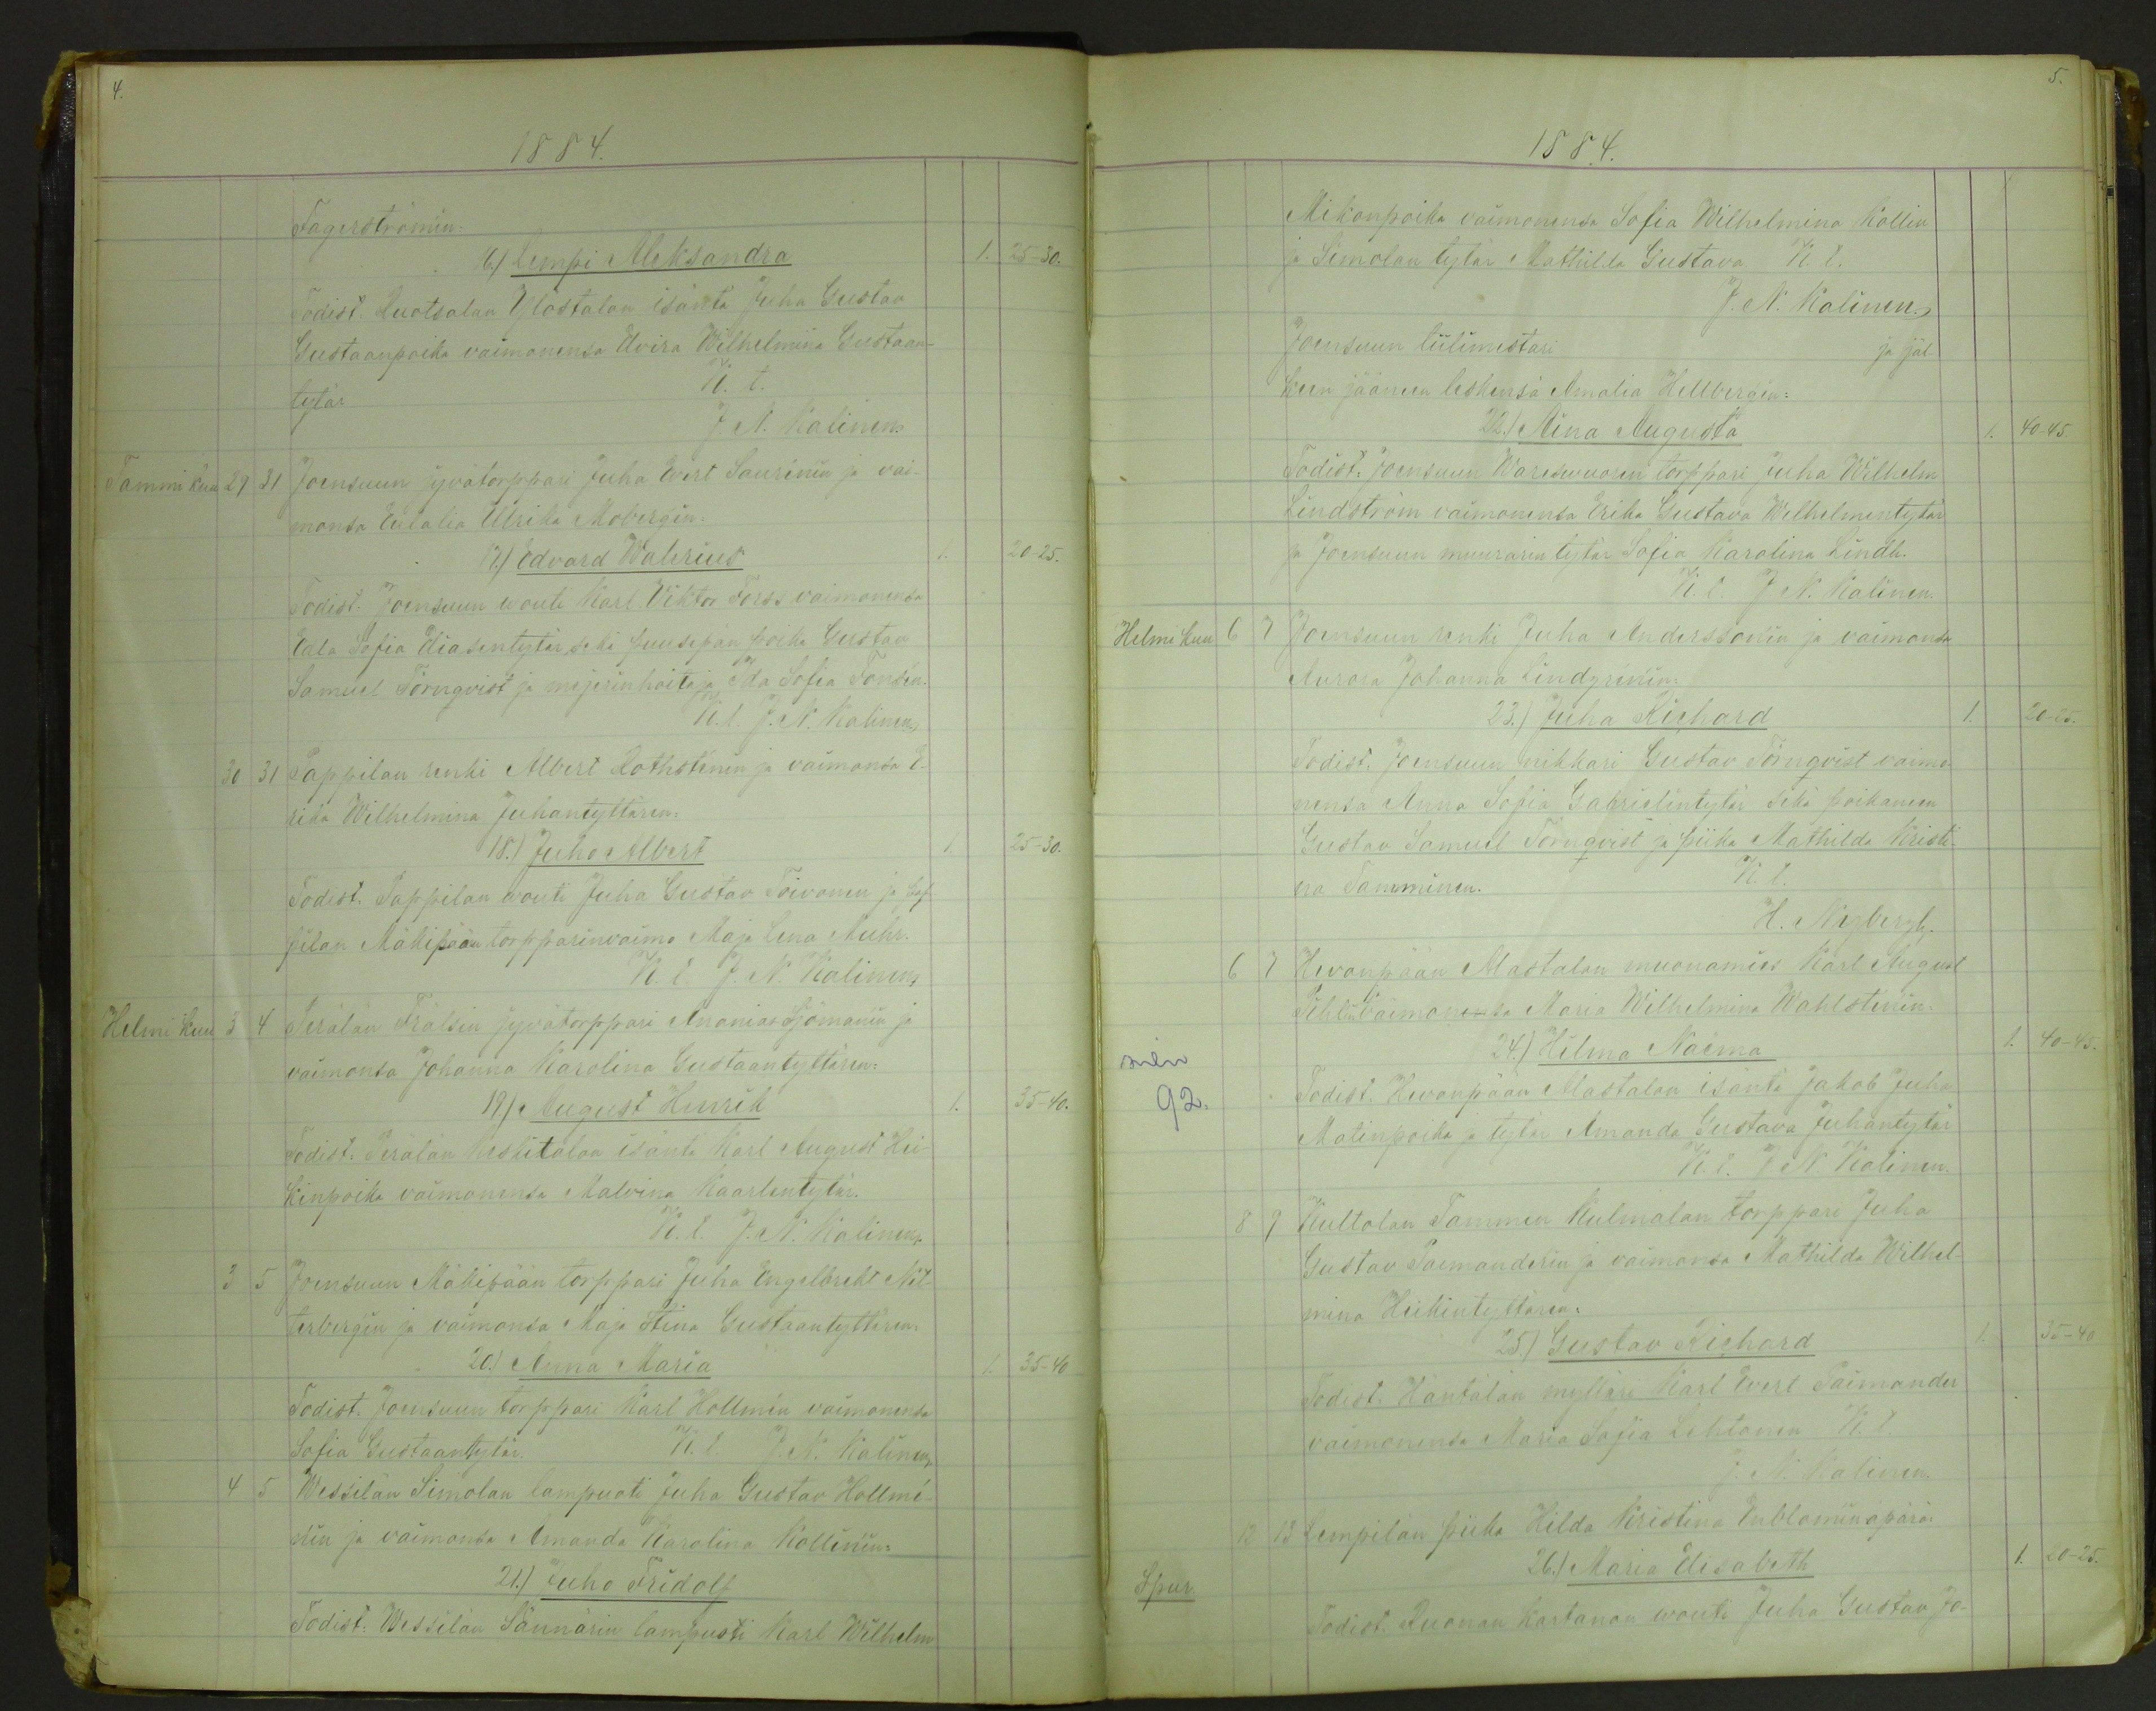 4.
1884.
Fagerströmin:
16.) Lempi Aleksandra 1. 25-30.
Todist. Ruotsalan Ylöstalon isäntä Juha Gustav
Gustaanpoika vaimonensa Elvira Wilhelmina Gustaan-
tytär K. t.
J. N. Kalinen.
Tammi kuu 29 31 Joensuun jyvätorppari Juha Evert Saurénin ja vai-
monsa Eulalia Ulrika Mobergin:
17.) Edvard Walerius 1. 20-25.
Todist. Joensuun wouti Karl Viktor Forss vaimonensa
Edla Sofia Eliasentytär sekä puusepän poika Gustav
Samuel Törnqvist ja mejerinhoitaja Ida Sofia Tonsén.
K. t. J. N. Kalinen.
30 31 Pappilan renki Albert Rothsténin ja vaimonsa E-
rika Wilhelmina Juhantyttären:
18.) Juho Albert 1. 25-30.
Todist. Pappilan wouti Juha Gustav Toivonen ja Pap-
pilan Mäkipään torpparinvaimo Maja Lena Muhr.
K. t. J. N. Kalinen,
Helmi kuu 3 4 Perälän Frälsin jyvätorppari Ananias Sjömanin ja
vaimonsa Johanna Karolina Gustaantyttären:
19.) August Henrik 1. 35-40.
Todist. Perälän Keskitalon isäntä Karl August Hei-
kinpoika vaimonensa Malvina Kaarlentytär.
K. t. J. N. Kalinen,
3 5 Joensuun Mäkipään torppari Juha Engelbrekt Nit-
terbergin ja vaimonsa Maja Stina Gustaantyttären:
20.) Anna Maria 1. 35-40
Todist. Joensuun torppari Karl Hollmén vaimonensa
Sofia Gustaantytär. K. t. J. N. Kalinen,
4 5 Wessilän Simolan lampuoti Juha Gustav Hollmé-
nin ja vaimonsa Amanda Karolina Kollinin:
21.) Juho Fridolf
Todist: Wessilän Sännärin lampuoti Karl Wilhelm
5.
1884.
Mikonpoika vaimonensa Sofia Wilhelmina Kollin
ja Simolan tytär Mathilda Gustava K. t.
J. N. Kalinen,
Joensuun liilimestari ja jäl-
keen jääneen leskensä Amalia Hellbergin:
22.) Aina Augusta 1. 40-45.
Todist: Joensuun Wareswuoren torppari Juha Wilhelm
Lindström vaimonensa Erika Gustava Wilhelmentytär
ja Joensuun muurarin tytär Sofia Karolina Lindh.
K. t. J. N. Kalinen.
Helmi kuu 6 7 Joensuun renki Juha Anderssonin ja vaimonsa
Aurora Johanna Lindgrénin:
23.) Juha Richard 1. 20-25.
Todist. Joensuun nikkari Gustav Törnqvist vaimo-
nensa Anna Sofia Gabrielintytär sekä poikaneen
Gustav Samuel Törnqvist ja piika Mathilda Kristi-
na Tamminen. K. t.
H. Nybergh.
6 7 Hevonpään Alastalon muonamies Karl August
Pihlin vaimonensa Maria Wilhelmina Wahlsténin:
24.) Hilma Naëma 1. 40-45.
Todist. Hevonpään Alastalon isäntä Jakob Juha
92.
Matinpoika ja tytär Amanda Gustava Juhantytär
K. t. J. N. Kalinen.
8 9 Kultolan Tammen Kulmalan torppari Juha
Gustav Paimanderin ja vaimonsa Mathilda Wilhel-
mina Heikintyttären:
25.) Gustav Richard 1. 35-40
Todist. Häntälän mylläri Karl Evert Paimander
vaimonensa Maria Sofia Lehtonen K. t.
J. N. Kalinen.
12 13 Lempilän piika Hilda Kristina Enblomin äpärä:
26.) Maria Elisabeth 1. 20-25.
Spur.
Todist. Ruonan Kartanon wouti Juha Gustav Jo-